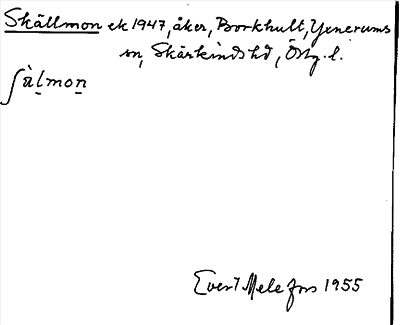 Skällmon ek 1947, åker, Borkhult, Yxnerums
sn, Skärkinds hd, Östg. l.
ʃàl̲mon̲
Evert Melefors 1955